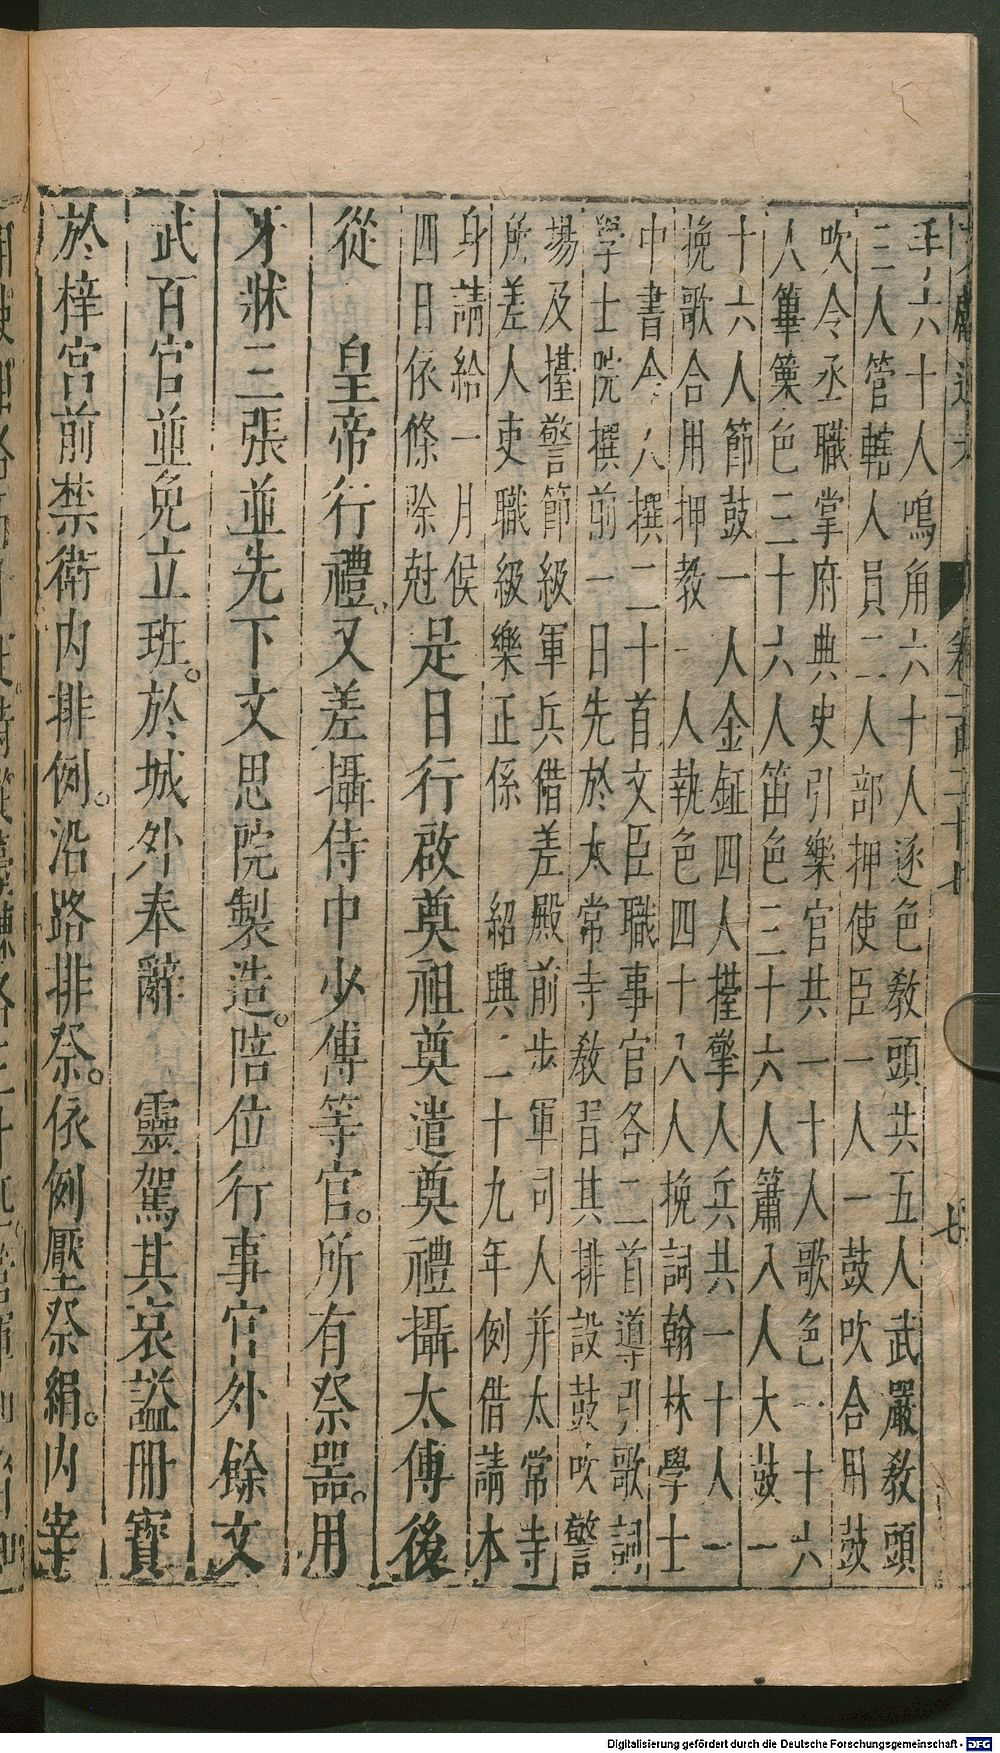 手六十人鳴角六十人逐色教頭共五人武嚴教頭
三人管轄人員二人部押使臣一人一鼓吹合用鼓
吹令丞職掌府典史引樂官共一十人歌色一十六
人篳篥色三十六人笛色三十六人簫八人大鼓一
十六人節鼓一人金鉦四人擡擎人兵共一十人一
挽歌合用押教一人執色四十八人挽詞翰林學士
中書令人撰二十首文臣職事官各二首導引歌詞
學士院撰前一日先於太常寺教習其排設鼓吹警
場及擡警節級軍兵借差殿前步軍司人并太常寺
所差人吏職級樂正係紹興二十九年例借請本
身請給一月候
四日依條除尅
是日行啟奠祖奠遣奠禮攝太傅後
從 皇帝行禮。又差攝侍中少傅等官。所有祭器。用
牙牀三張並先下文思院製造。陪位行事官外餘文
武百官並免立班。於城外奉辭 靈駕其哀謚冊寶
於梓宮前禁衛内排例。沿路排祭。依例壓祭絹。内宰
Digitalisierung gefördert durch die Deutsche Forschungsgemeinschaft - DFG